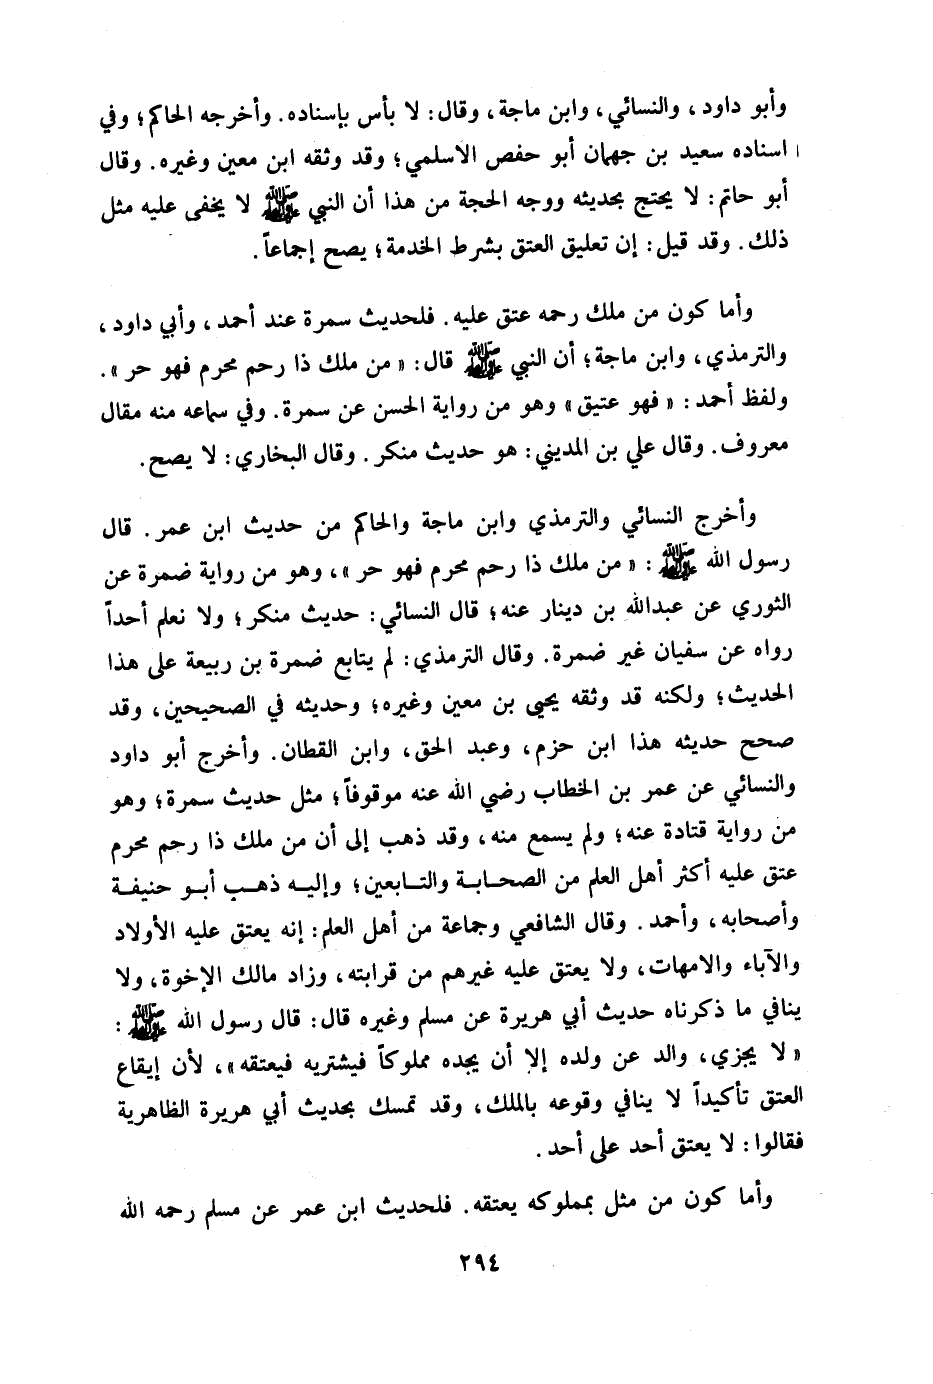 وأبو داود، والنسائي، وابن ماجة، وقال: لا بأس بإسناده. وأخرجه الحاكم؛ وفي
اسناده سعيد بن جهمان أبو حفص الاسلمي؛ وقد وثقه ابن معين وغيره. وقال
أبو حاتم: لا يحتج بحديثه ووجه الحجة من هذا أن النبي ﷺ لا يخفى عليه مثل
ذلك. وقد قيل: إن تعليق العتق بشرط الخدمة؛ يصح إجماعاً.
وأما كون من ملك رحمه عتق عليه. فلحديث سمرة عند أحمد، وأبي داود،
والترمذي، وابن ماجة؛ أن النبي ﷺ قال: « من ملك ذا رحم محرم فهو حر ».
ولفظ أحمد: « فهو عتيق » وهو من رواية الحسن عن سمرة. وفي سماعه منه مقال
معروف. وقال علي بن المديني: هو حديث منكر. وقال البخاري: لا يصح.
وأخرج النسائي والترمذي وابن ماجة والحاكم من حديث ابن عمر. قال
رسول الله ﷺ: « من ملك ذا رحم محرم فهو حر »، وهو من رواية ضمرة عن
الثوري عن عبدالله بن دينار عنه؛ قال النسائي: حديث منكر؛ ولا نعلم أحداً
رواه عن سفيان غير ضمرة. وقال الترمذي: لم يتابع ضمرة بن ربيعة على هذا
الحديث؛ ولكنه قد وثقه يحيى بن معين وغيره؛ وحديثه في الصحيحين، وقد
صحح حديثه هذا ابن حزم، وعبد الحق، وابن القطان. وأخرج أبو داود
والنسائي عن عمر بن الخطاب رضي الله عنه موقوفاً؛ مثل حديث سمرة؛ وهو
من رواية قتادة عنه؛ ولم يسمع منه، وقد ذهب إلى أن من ملك ذا رحم محرم
عتق عليه أكثر أهل العلم من الصحابة والتابعين؛ وإليه ذهب أبو حنيفة
وأصحابه، وأحمد. وقال الشافعي وجماعة من أهل العلم: إنه يعتق عليه الأولاد
والآباء والامهات، ولا يعتق عليه غيرهم من قرابته، وزاد مالك الإخوة، ولا
ينافي ما ذكرناه حديث أبي هريرة عن مسلم وغيره قال: قال رسول الله ﷺ:
« لا يجزي، والد عن ولده إلا أن يجده مملوكاً فيشتريه فيعتقه »، لأن إيقاع
العتق تأكيداً لا ينافي وقوعه بالملك، وقد تمسك بحديث أبي هريرة الظاهرية
فقالوا: لا يعتق أحد على أحد.
وأما كون من مثل بمملوكه يعتقه. فلحديث ابن عمر عن مسلم رحمه الله
٢٩٤